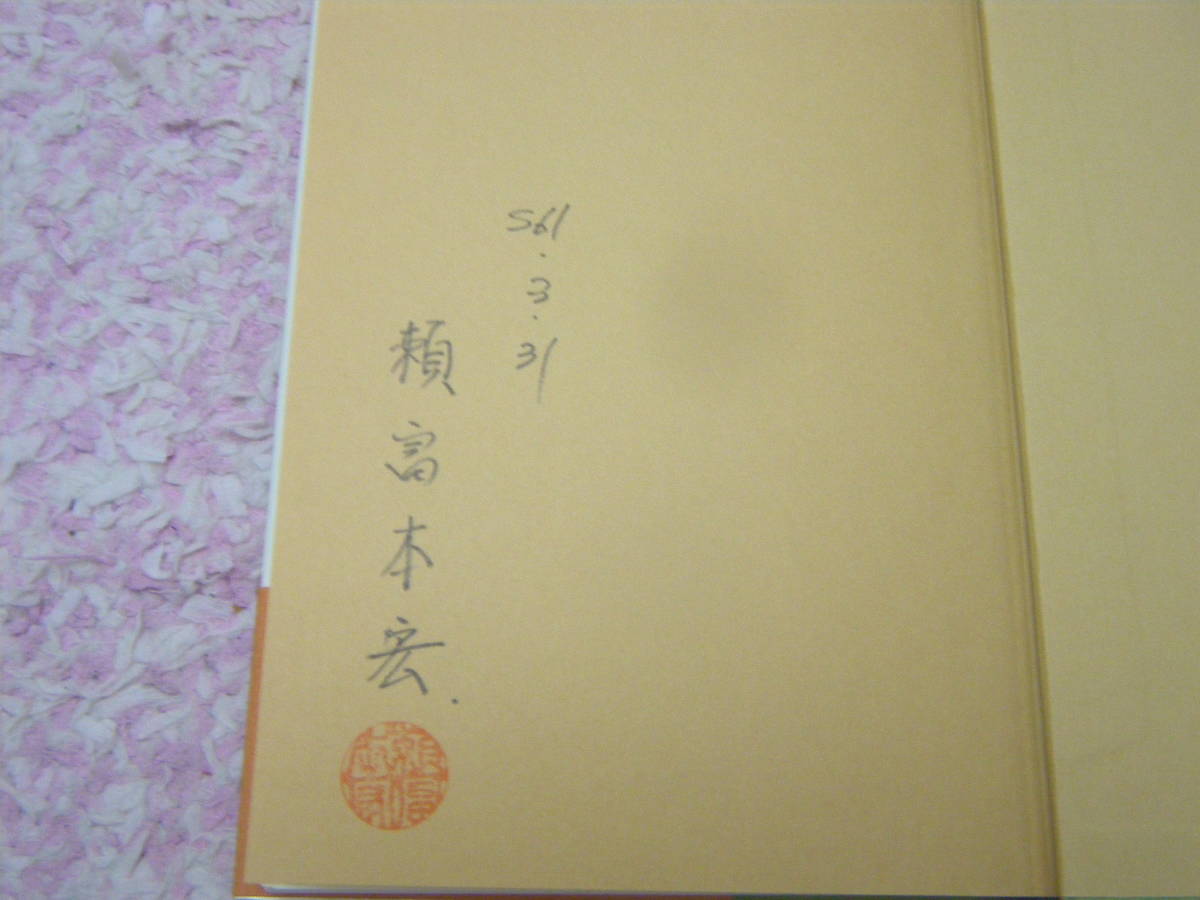 S61.3.31
頼富本宏.